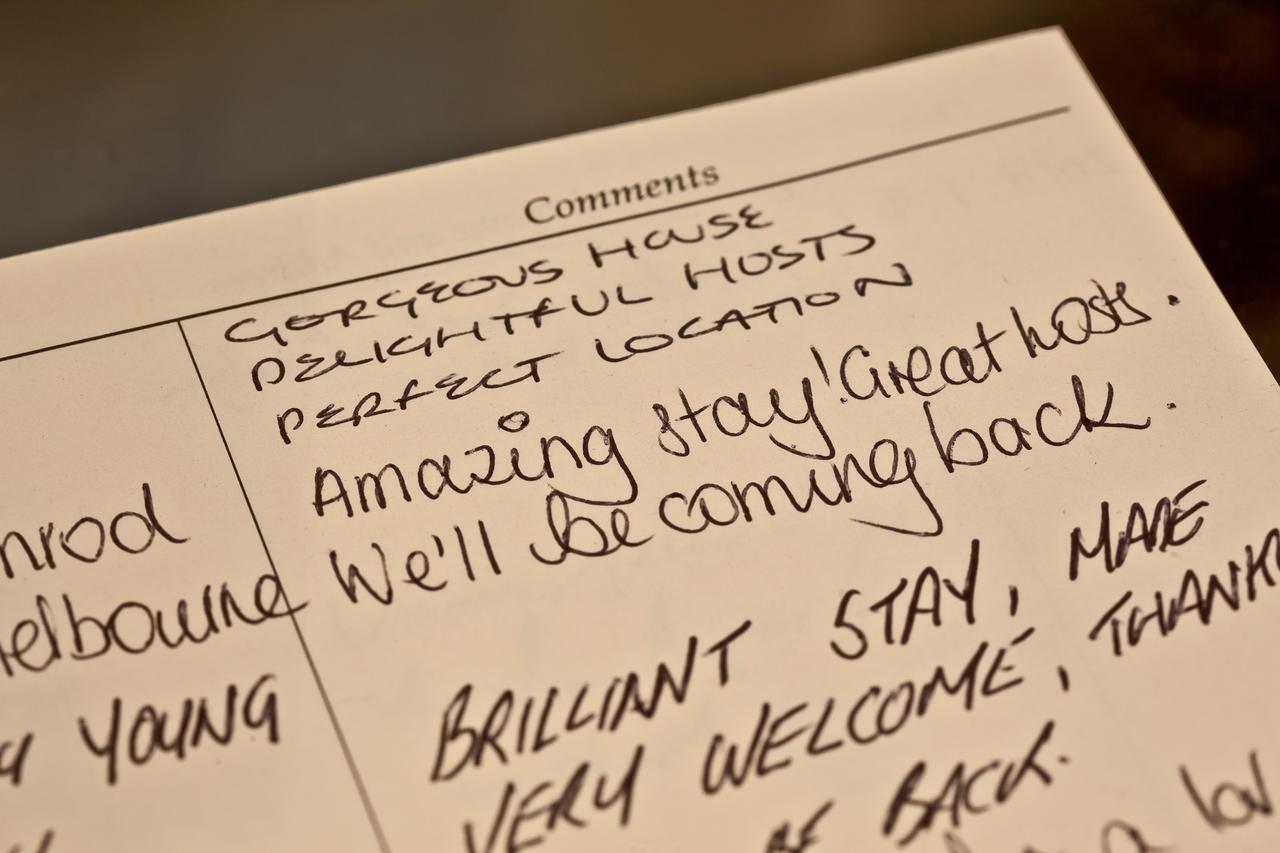 Comments
GORGEOUS HOUSE
DELIGHTFUL HOSTS
PERFECT LOCATION
Amazing stay! Great hosts.
We'll be coming back.
BRILLIANT STAY, MADE
VERY WELCOME, THANK
BE BACK.
a
YOUNG